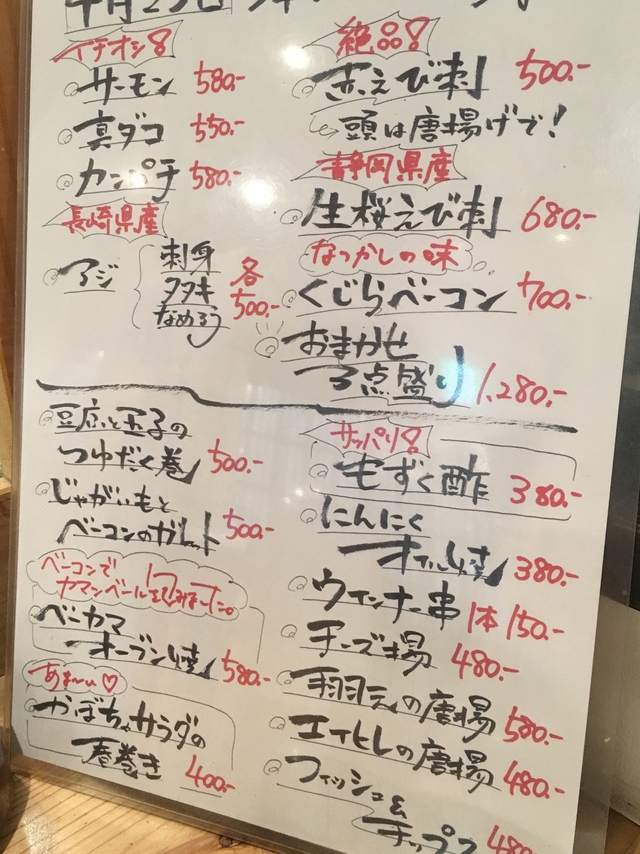 イチオシ!
サーモン 580.-
真ダコ 550.-
カンパチ 580.-
長崎県産
アジ
刺身
タタキ
なめろう
各
500.-
絶品!
赤えび刺 500.-
頭は唐揚げで!
静岡県産
生桜えび刺 680.-
なつかしの味
くじらベーコン 700.-
おまかせ
3点盛り 1,280.-
豆腐と玉子の
つゆだく巻 500.-
じゃがいもと
ベーコンのガレット 500.-
ベーコンで
カマンベールを
ベーカマ
オーブン焼 580.-
あま〜い♡
かぼちゃサラダの
春巻き 400.-
サッパリ!
もずく酢 380.-
にんにく
オイル焼 380.-
ウインナー串 1本150.-
チーズ揚 480.-
の唐揚 580.-
エイヒレの唐揚 480.-
フィッシュ&
チップス 480.-